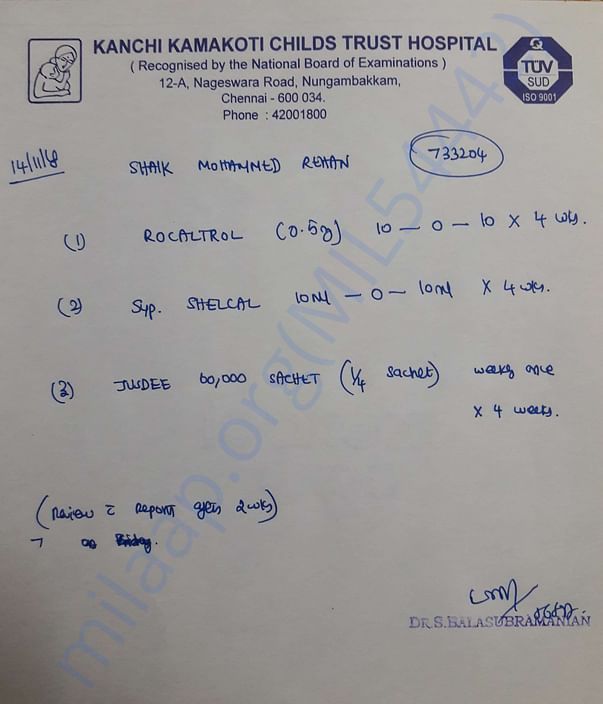 KANCHI KAMAKOTI CHILDS TRUST HOSPITAL
( Recognised by the National Board of Examinations )
12-A, Nageswara Road, Nungambakkam,
Chennai - 600 034.
Phone : 42001800
Q
TÜV
SUD
ISO 9001
14/11/18
SHAIK MOHAMMED REHAN
733204
(1) ROCALTROL (0.5g) 10 — 0 — 10 X 4 wks.
(2) Syp. SHELCAL 10ml — 0 — 10ml X 4 wks.
(3) JUSDEE 60,000 SACHET (1/4 sachet) weekly once
X 4 weeks.
(Review c report after 2 wks)
DR.S.BALASUBRAMANIAN
milaap.org(MIL54442)